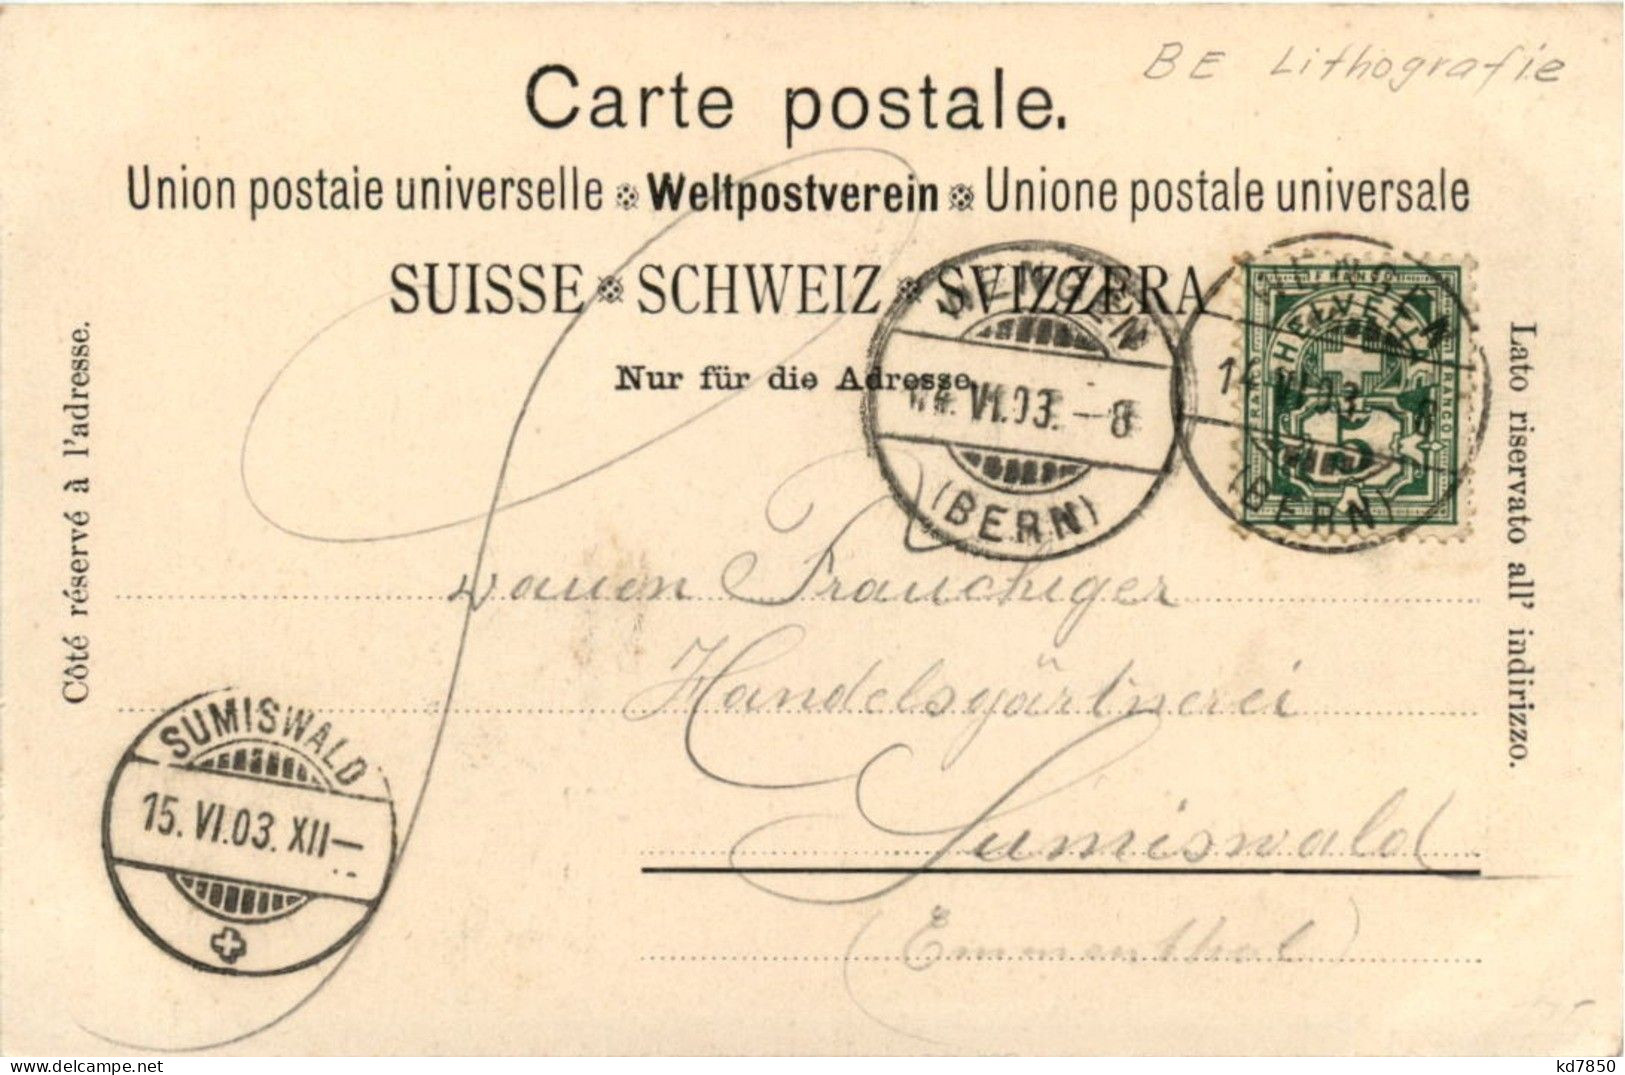 BE Lithografie
Carte postale.
Union postale universelle Weltpostverein Unione postale universale
SUISSE SCHWEIZ SVIZZERA
Nur für die Adresse.
Côté réservé à l'adresse.
Lato riservato all' indirizzo.
WENGEN
14. VI.03.—8
(BERN)
WENGEN
14. VI.03.—8
(BERN)
FRANCO
HELVETIA
5
Frauchiger
Handelsgärtnerei
Sumiswald
(Emmenthal)
SUMISWALD
15. VI.03. XII—
kd7850